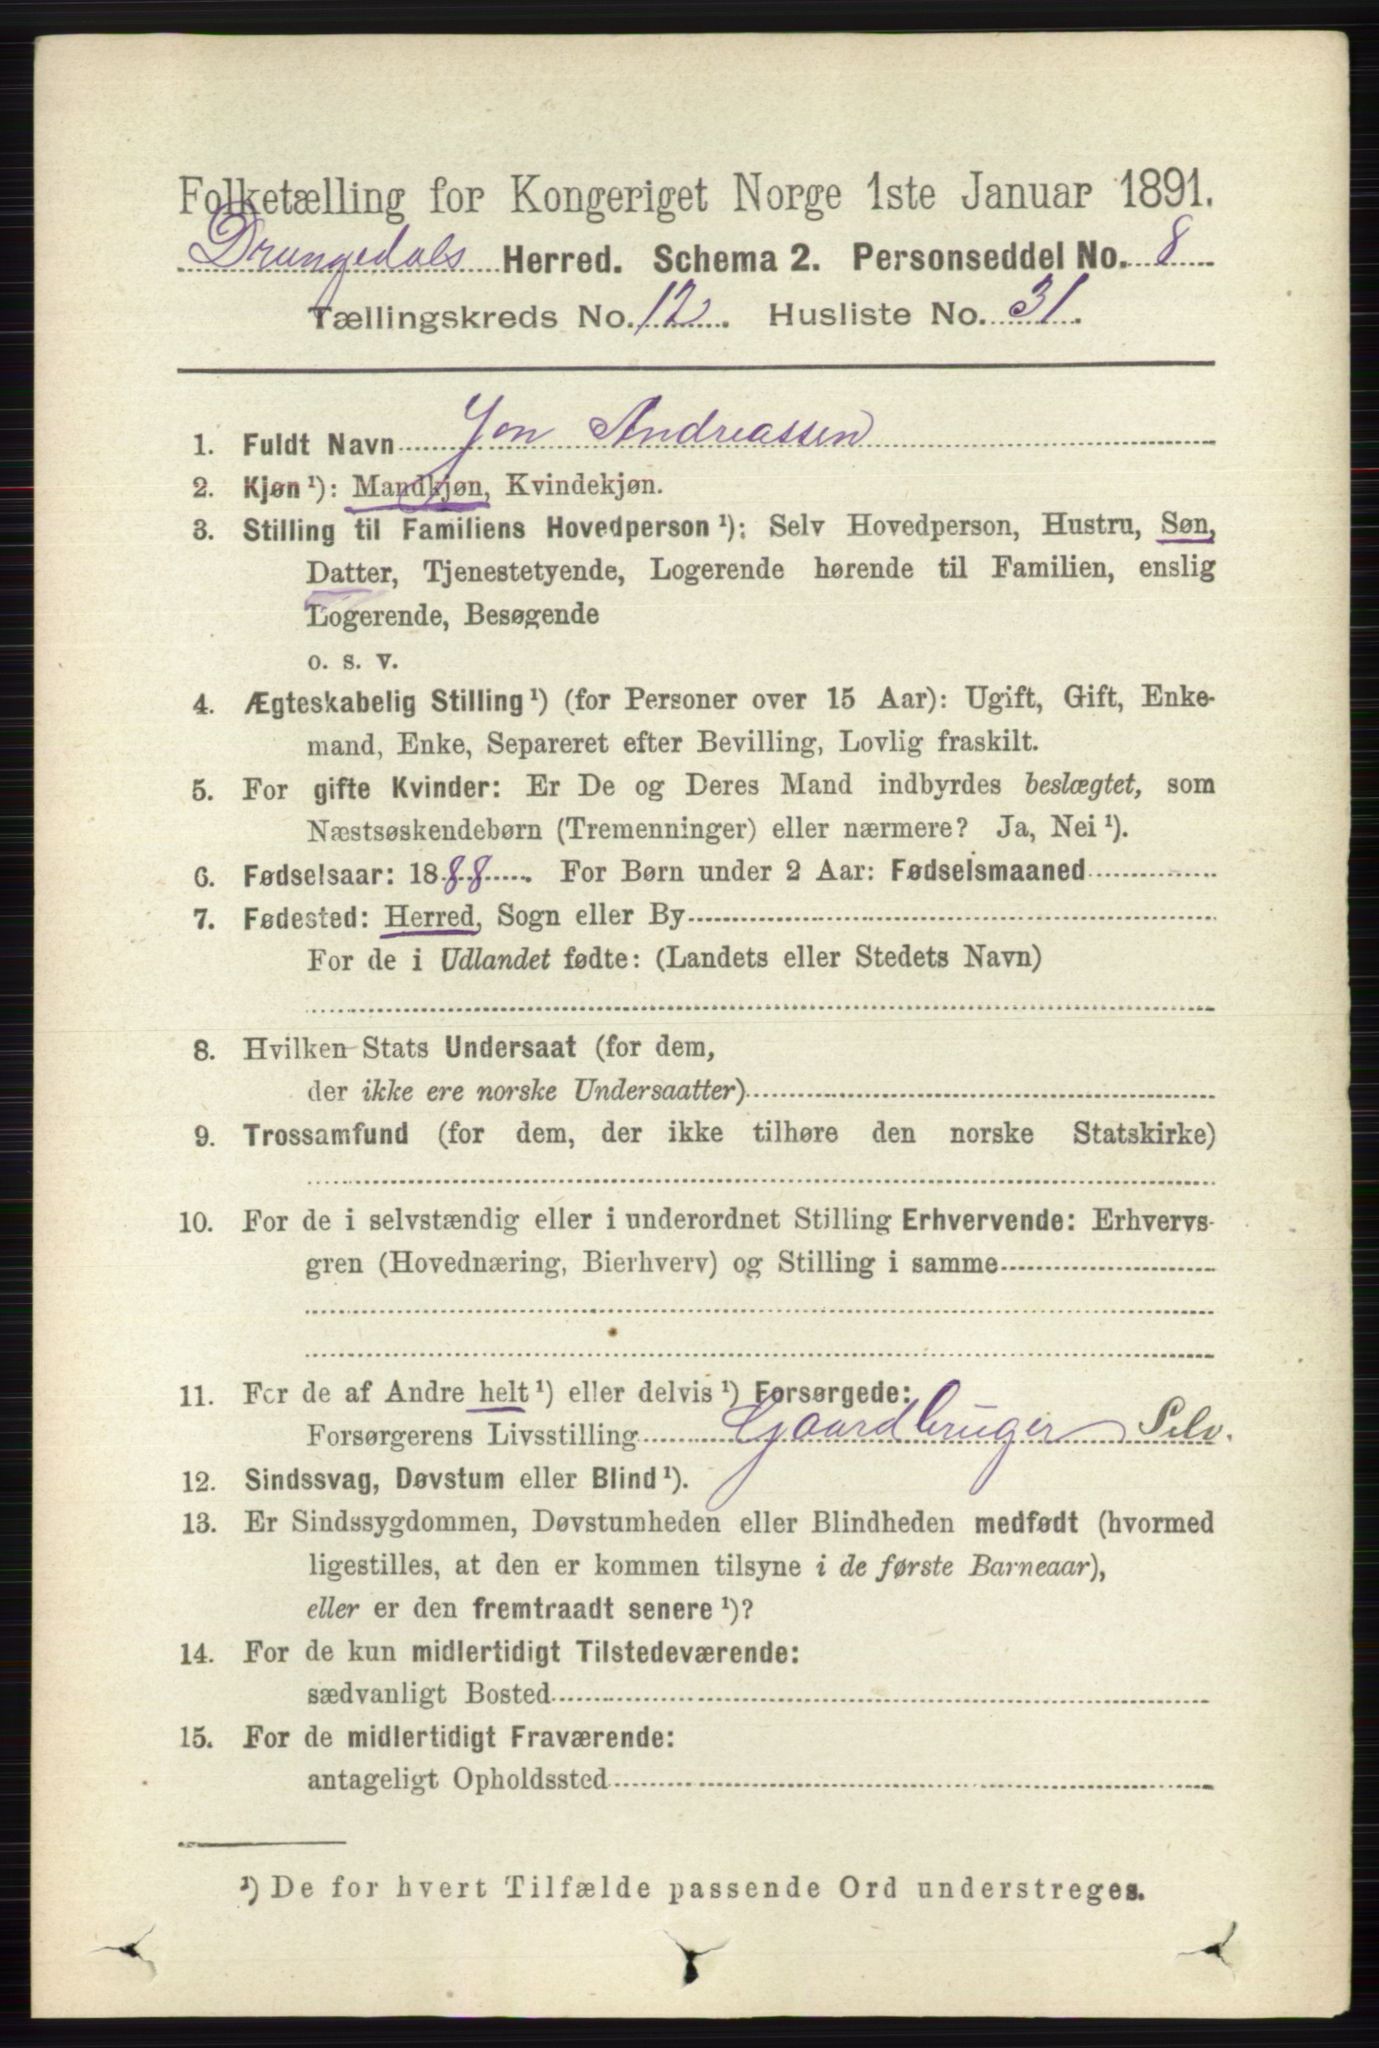 Folketælling for Kongeriget Norge 1ste Januar 1891.
Drangedals Herred. Schema 2. Personseddel No. 8
Tællingskreds No. 12. Husliste No. 31.
1. Fuldt Navn Jon Andreassen
2. Kjøn ¹): Mandkjøn, Kvindekjøn.
3. Stilling til Familiens Hovedperson ¹): Selv Hovedperson, Hustru, Søn,
Datter, Tjenestetyende, Logerende hørende til Familien, enslig
Logerende, Besøgende
o. s. v.
4. Ægteskabelig Stilling ¹) (for Personer over 15 Aar): Ugift, Gift, Enke-
mand, Enke, Separeret efter Bevilling, Lovlig fraskilt.
5. For gifte Kvinder: Er De og Deres Mand indbyrdes beslægtet, som
Næstsøskendebørn (Tremenninger) eller nærmere? Ja, Nei ¹).
6. Fødselsaar: 1888. For Børn under 2 Aar: Fødselsmaaned
7. Fødested: Herred, Sogn eller By
For de i Udlandet fødte: (Landets eller Stedets Navn)
8. Hvilken Stats Undersaat (for dem,
der ikke ere norske Undersaatter)
9. Trossamfund (for dem, der ikke tilhøre den norske Statskirke)
10. For de i selvstændig eller i underordnet Stilling Erhvervende: Erhvervs-
gren (Hovednæring, Bierhverv) og Stilling i samme
11. For de af Andre helt ¹) eller delvis ¹) Forsørgede:
Forsørgerens Livsstilling Gaardbruger Selv.
12. Sindssvag, Døvstum eller Blind ¹).
13. Er Sindssygdommen, Døvstumheden eller Blindheden medfødt (hvormed
ligestilles, at den er kommen tilsyne i de første Barneaar),
eller er den fremtraadt senere ¹)?
14. For de kun midlertidigt Tilstedeværende:
sædvanligt Bosted
15. For de midlertidigt Fraværende:
antageligt Opholdssted
¹) De for hvert Tilfælde passende Ord understreges.